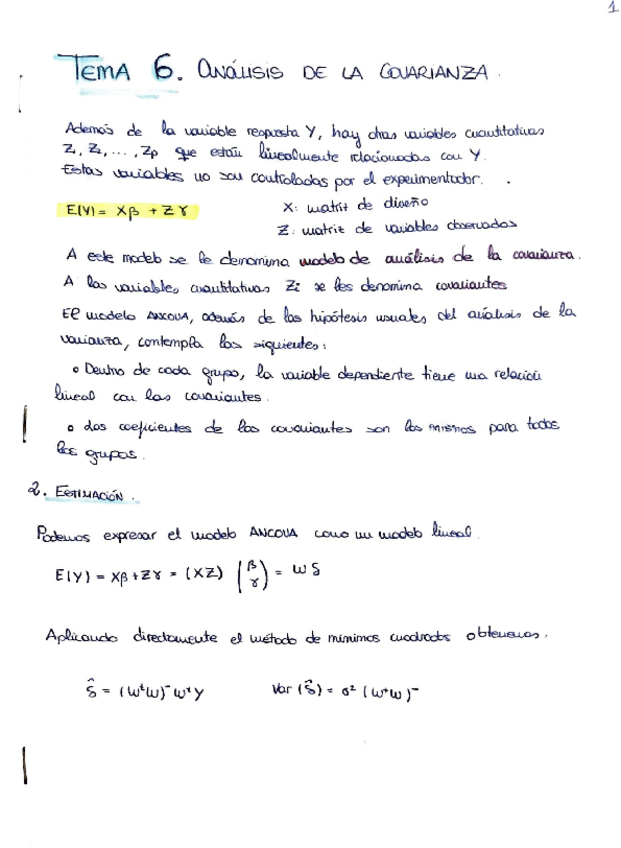 1
TEMA 6. ANÁLISIS DE LA COVARIANZA.
Además de la variable respuesta Y, hay otras variables cuantitativas
Z₁, Z₂, ..., Zp que están linealmente relacionadas con Y.
Estas variables no son controladas por el experimentador.
E(Y) = Xβ + Zγ X: matriz de diseño
Z: matriz de variables observadas
A este modelo se le denomina modelo de análisis de la covarianza.
A las variables cuantitativas Zi se les denomina covariantes
El modelo ANCOVA, además de las hipótesis usuales del análisis de la
varianza, contempla las siguientes:
• Dentro de cada grupo, la variable dependiente tiene una relación
lineal con las covariantes.
• Los coeficientes de las covariantes son los mismos para todos
los grupos.
2. ESTIMACIÓN.
Podemos expresar el modelo ANCOVA como un modelo lineal.
E(Y) = Xβ + Zγ = (XZ) (β γ) = Wδ
Aplicando directamente el método de mínimos cuadrados obtenemos.
δ̂ = (WᵗW)⁻WᵗY Var(δ̂) = σ²(WᵗW)⁻